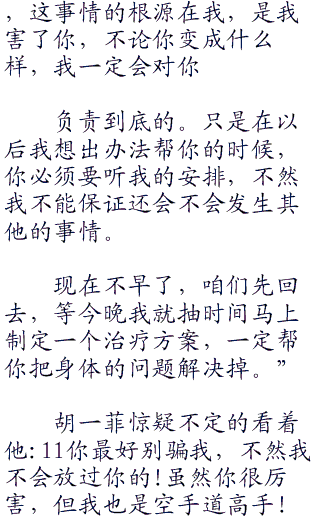 ，这事情的根源在我，是我
害了你，不论你变成什么
样，我一定会对你
负责到底的。只是在以
后我想出办法帮你的时候，
你必须要听我的安排，不然
我不能保证还会不会发生其
他的事情。
现在不早了，咱们先回
去，等今晚我就抽时间马上
制定一个治疗方案，一定帮
你把身体的问题解决掉。”
胡一菲惊疑不定的看着
他:11你最好别骗我，不然我
不会放过你的!虽然你很厉
害，但我也是空手道高手!